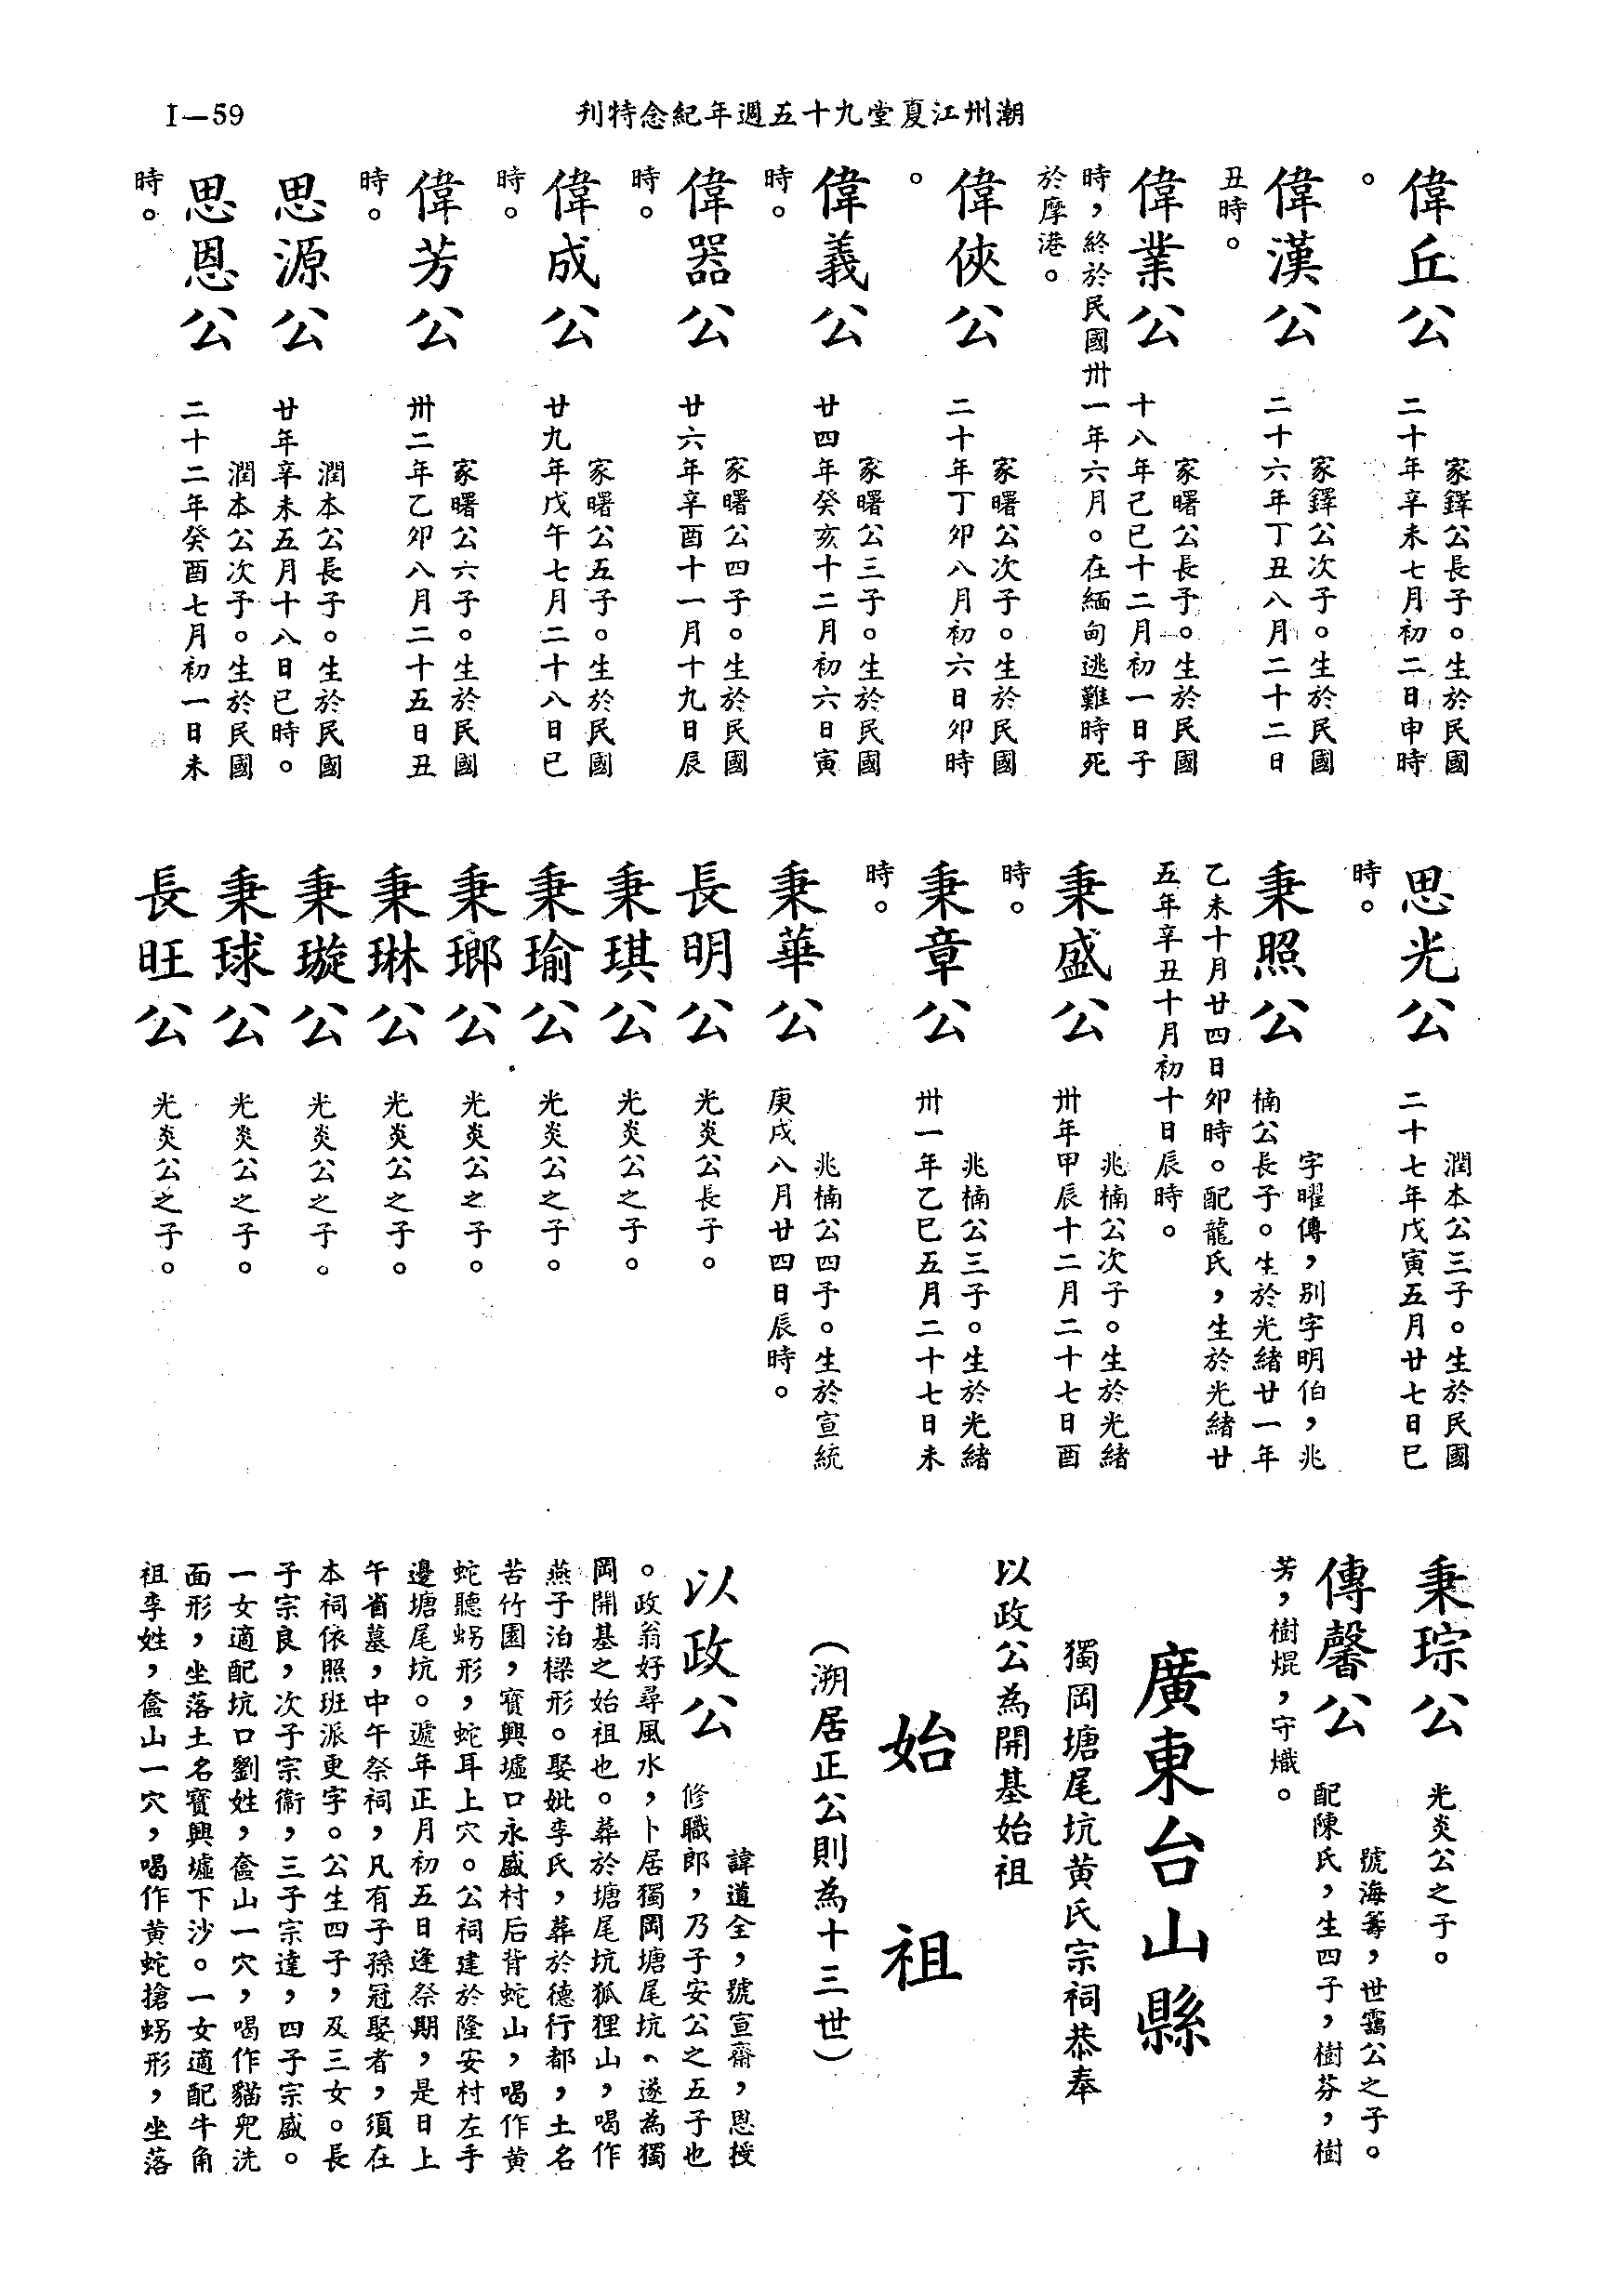 潮州江夏堂九十五週年紀念特刊
I—59
偉丘公
家鐸公長子。生於民國
二十年辛未七月初二日申時
。
偉漢公
家鐸公次子。生於民國
二十六年丁丑八月二十二日
丑時。
偉業公
家曙公長子。生於民國
十八年己巳十二月初一日子
時，終於民國卅一年六月。在緬甸逃難時死
於摩港。
偉俠公
家曙公次子。生於民國
二十年丁卯八月初六日卯時
。
偉義公
家曙公三子。生於民國
廿四年癸亥十二月初六日寅
時。
偉器公
家曙公四子。生於民國
廿六年辛酉十一月十九日辰
時。
偉成公
家曙公五子。生於民國
廿九年戊午七月二十八日巳
時。
偉芳公
家曙公六子。生於民國
卅二年乙卯八月二十五日丑
時。
思源公
潤本公長子。生於民國
廿年辛未五月十八日巳時。
思恩公
潤本公次子。生於民國
二十二年癸酉七月初一日未
時。
思光公
潤本公三子。生於民國
二十七年戊寅五月廿七日巳
時。
秉照公
字曜傳，別字明伯，兆
楠公長子。生於光緒廿一年
乙未十月廿四日卯時。配龍氏，生於光緒廿
五年辛丑十月初十日辰時。
秉盛公
兆楠公次子。生於光緒
卅年甲辰十二月二十七日酉
時。
秉章公
兆楠公三子。生於光緒
卅一年乙巳五月二十七日未
時。
秉華公
兆楠公四子。生於宣統
庚戌八月廿四日辰時。
長明公
光炎公長子。
秉琪公
光炎公之子。
秉瑜公
光炎公之子。
秉瑯公
光炎公之子。
秉琳公
光炎公之子。
秉璇公
光炎公之子。
秉球公
光炎公之子。
長旺公
光炎公之子。
秉琮公
光炎公之子。
傳馨公
號海籌，世靄公之子。
配陳氏，生四子，樹芬，樹
芳，樹焜，守熾。
廣東台山縣
獨岡塘尾坑黃氏宗祠恭奉
以政公為開基始祖
始祖
（溯居正公則為十三世）
以政公
諱道全，號宣齋，恩授
修職郎，乃子安公之五子也
。政翁好尋風水，卜居獨岡塘尾坑、遂為獨
岡開基之始祖也。葬於塘尾坑狐狸山，喝作
燕子泊樑形。娶妣李氏，葬於德行都，土名
苦竹園，寶興墟口永盛村后背蛇山，喝作黃
蛇聽蜴形，蛇耳上穴。公祠建於隆安村左手
邊塘尾坑。遞年正月初五日逢祭期，是日上
午省墓，中午祭祠，凡有子孫冠娶者，須在
本祠依照班派更字。公生四子，及三女。長
子宗良，次子宗衞，三子宗達，四子宗盛。
一女適配坑口劉姓，奩山一穴，喝作貓兜洗
面形，坐落土名寶興墟下沙。一女適配牛角
祖李姓，奩山一穴，喝作黃蛇搶蜴形，坐落